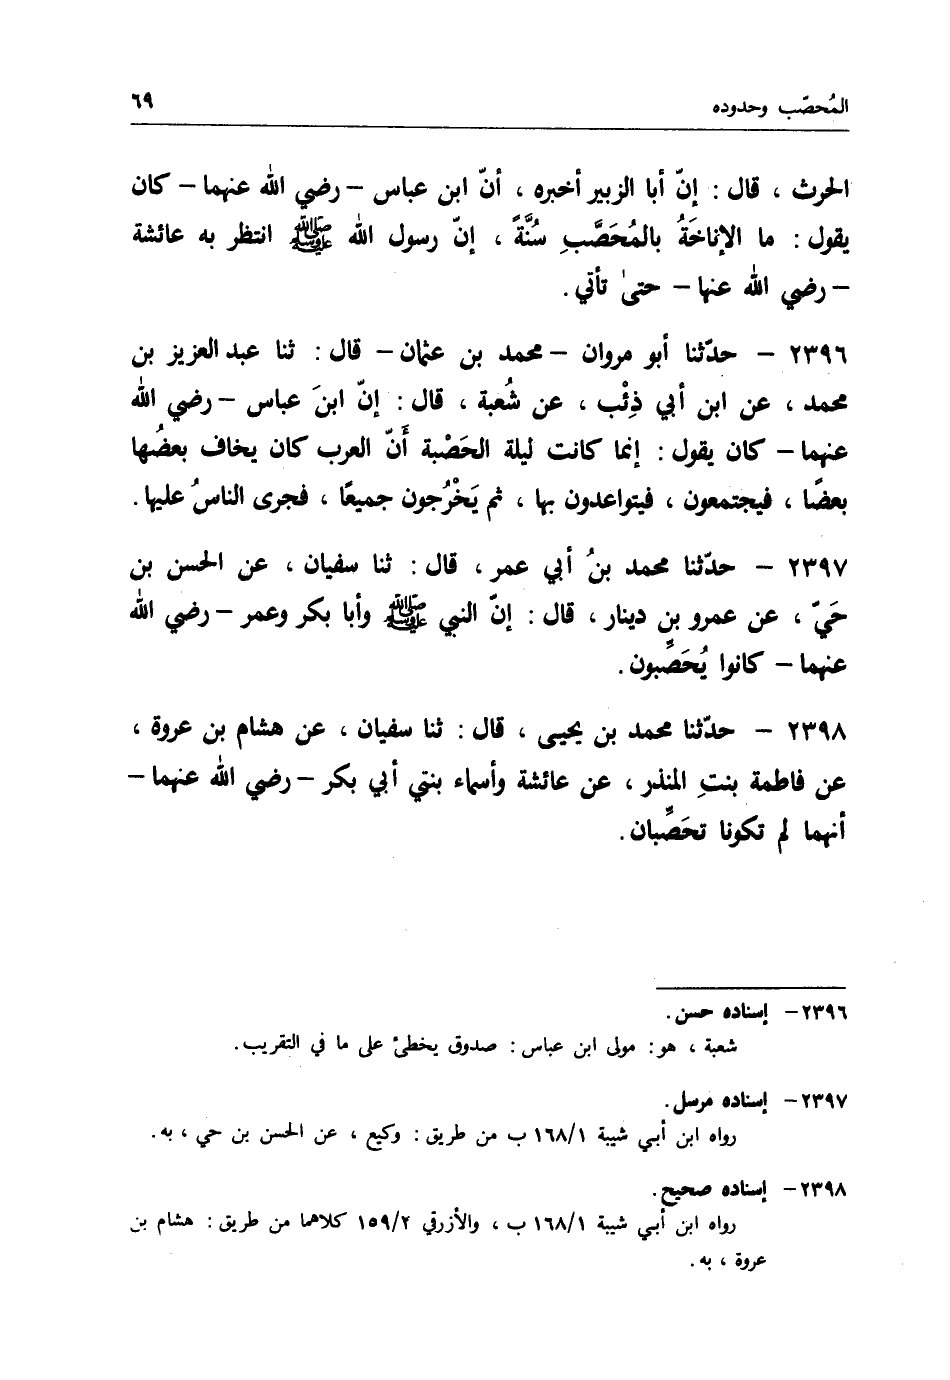 المُحصّب وحدوده ٦٩
الحرث ، قال : إنّ أبا الزبير أخبره ، أنّ ابن عباس – رضي الله عنهما – كان
يقول : ما الإناخَةُ بالمُحَصَّبِ سُنَّةً ، إنّ رسول الله ﷺ انتظر به عائشة
– رضي الله عنها – حتىٰ تأتي .
٢٣٩٦ – حدّثنا أبو مروان – محمد بن عثمان – قال : ثنا عبد العزيز بن
محمد ، عن ابن أبي ذِئْب ، عن شُعبة ، قال : إنّ ابنَ عباس – رضي الله
عنهما – كان يقول : إنما كانت ليلة الحَصْبة أَنّ العرب كان يخاف بعضُها
بعضًا ، فيجتمعون ، فيتواعدون بها ، ثم يَخْرُجون جميعًا ، فجرى الناسُ عليها .
٢٣٩٧ – حدّثنا محمد بنُ أبي عمر ، قال : ثنا سفيان ، عن الحسن بن
حَيّ ، عن عمرو بن دينار ، قال : إنّ النبي ﷺ وأبا بكر وعمر – رضي الله
عنهما – كانوا يُحَصِّبون .
٢٣٩٨ – حدّثنا محمد بن يحيى ، قال : ثنا سفيان ، عن هشام بن عروة ،
عن فاطمة بنتِ المنذر ، عن عائشة وأسماء بنتي أبي بكر – رضي الله عنهما –
أنهما لم تكونا تحَصِّبان .
٢٣٩٦ – إسناده حسن .
شعبة ، هو : مولى ابن عباس : صدوق يخطئ على ما في التقريب .
٢٣٩٧ – إسناده مرسل .
رواه ابن أبي شيبة ١٦٨/١ ب من طريق : وكيع ، عن الحسن بن حي ، به .
٢٣٩٨ – إسناده صحيح .
رواه ابن أبي شيبة ١٦٨/١ ب ، والأزرقي ١٥٩/٢ كلاهما من طريق : هشام بن
عروة ، به .